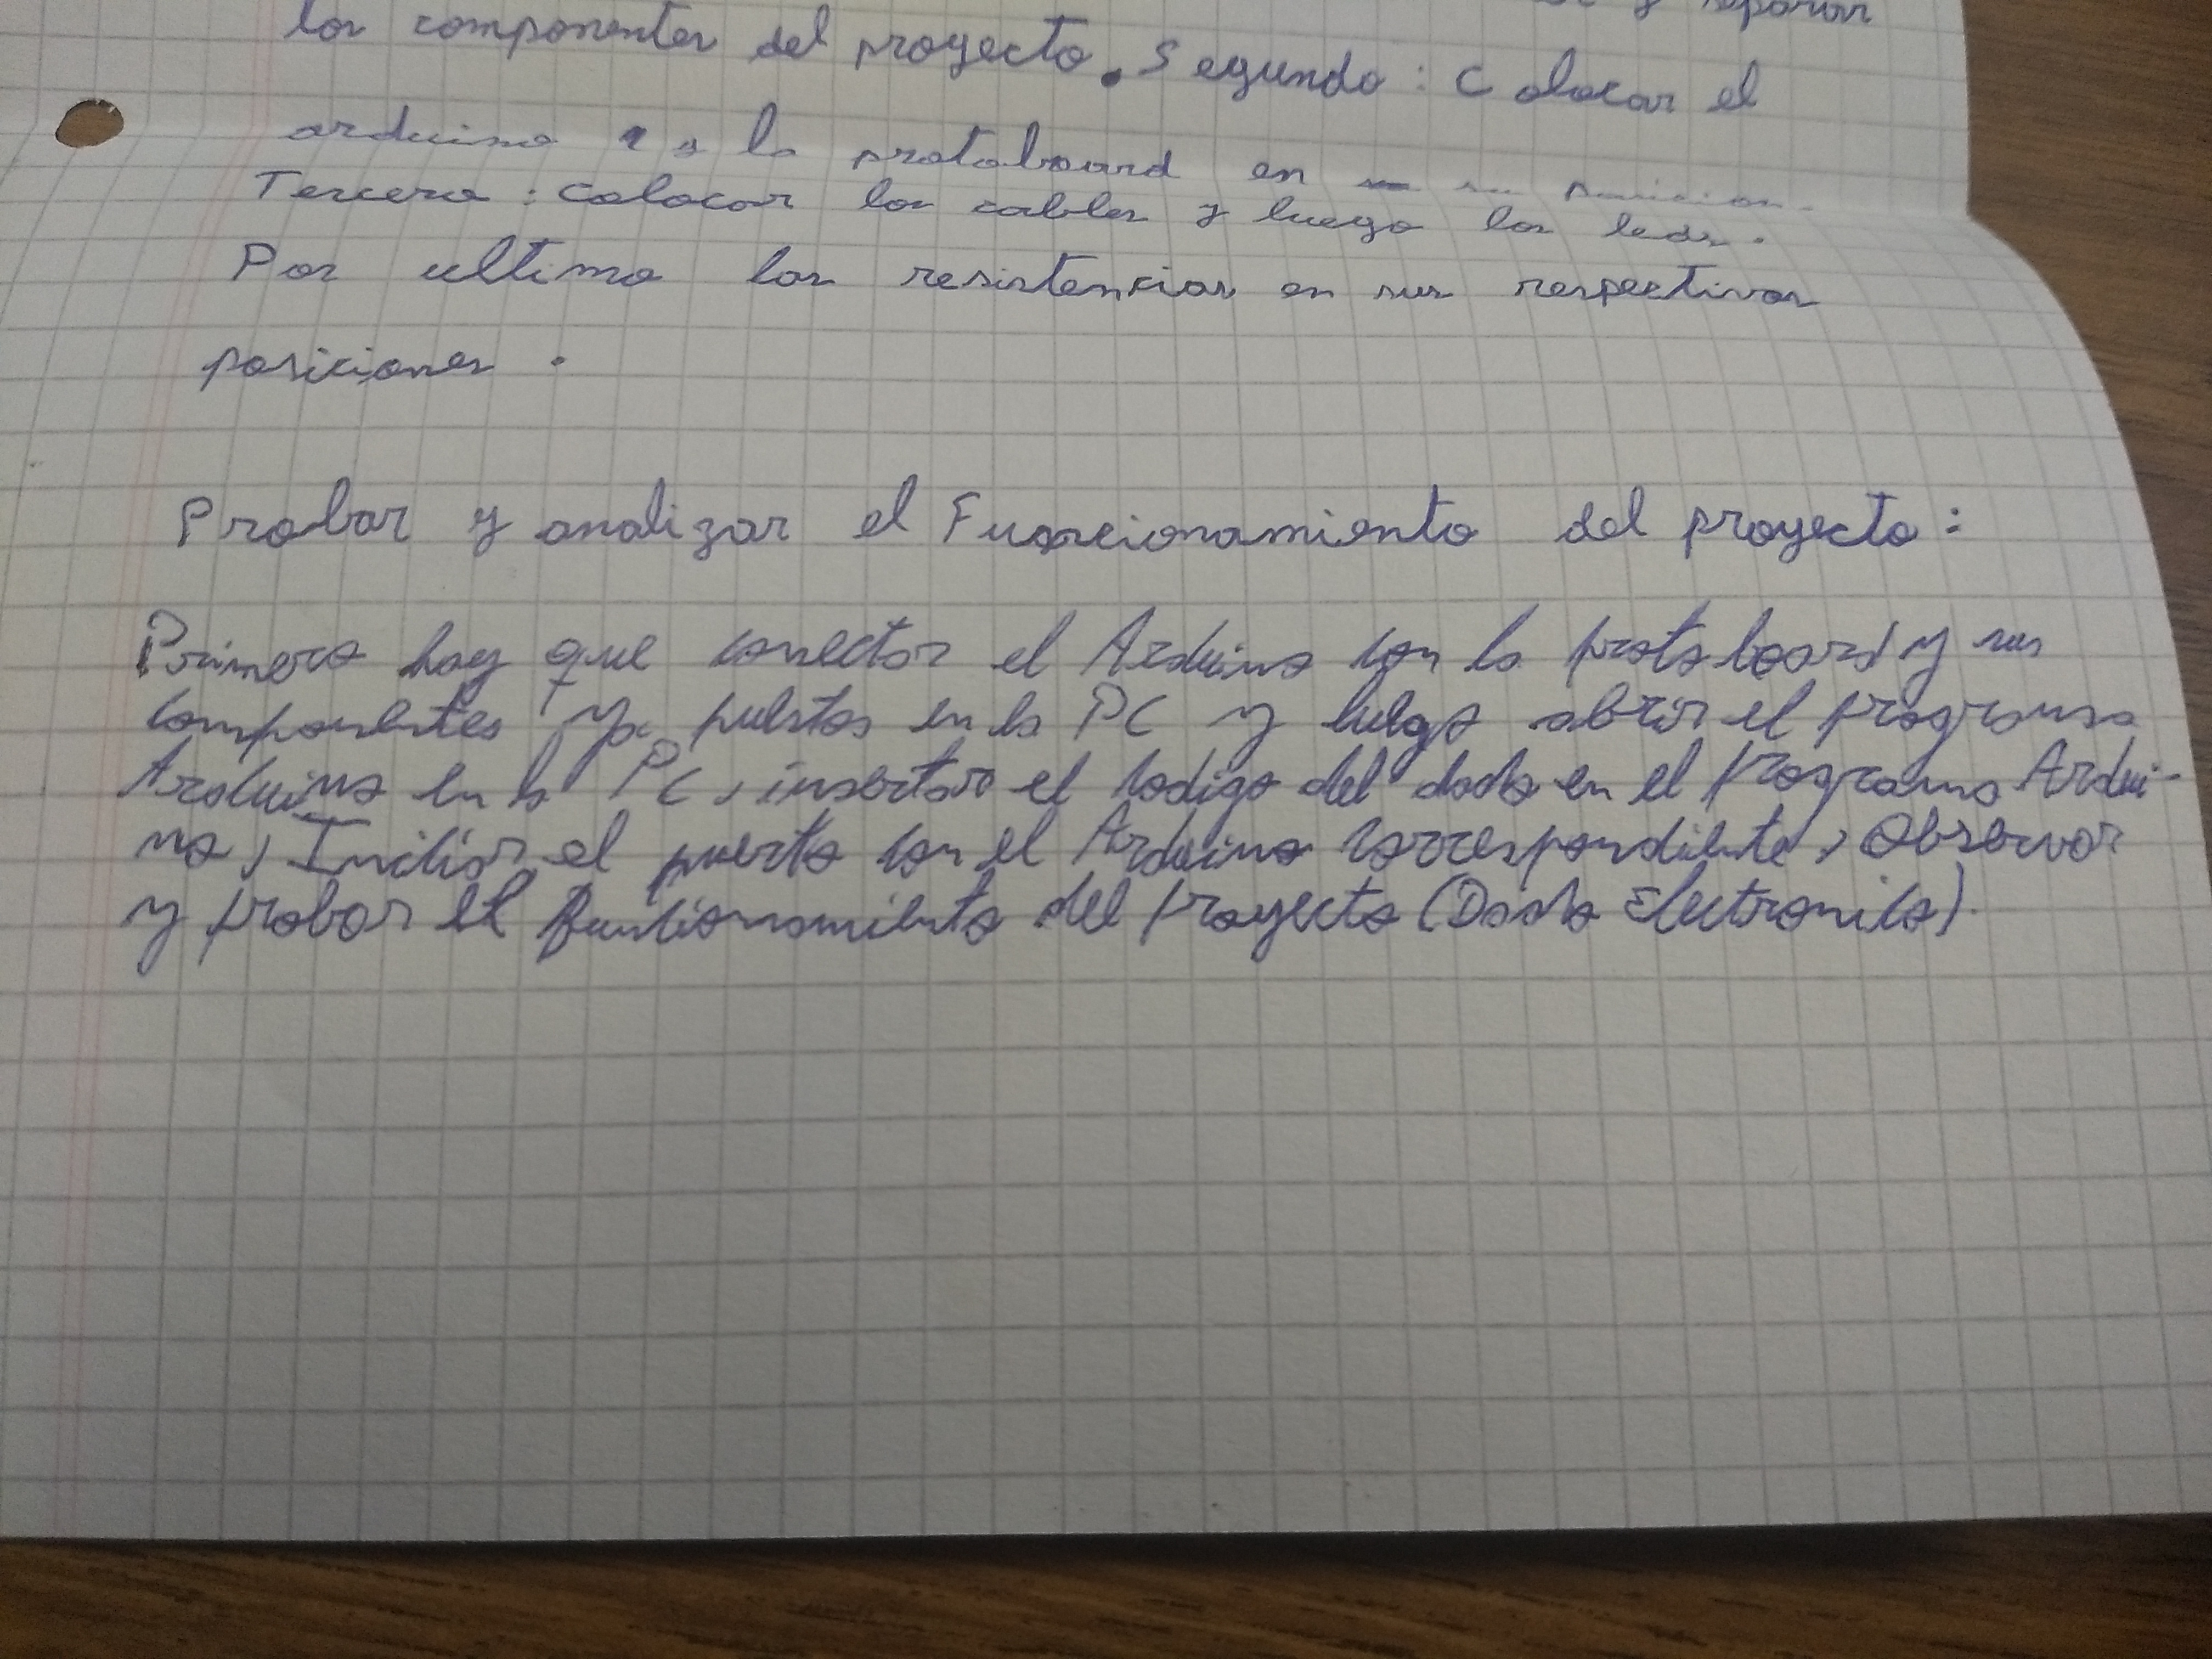 y separar
los componentes del proyecto. Segundo: Colocar el
arduino y la protoboard en su posicion.
Tercero: Colocar los cables y luego los leds.
Por ultimo las resistencias en sus respectivas
posiciones.
Probar y analizar el Funcionamiento del proyecto:
Primero hay que conectar el Arduino con la protoboard y sus
componentes ya puestos en la PC y luego abrir el programa
Arduino en la PC, insertar el codigo del dado en el programa Ardui-
no, Iniciar el puerto con el Arduino correspondiente, Observar
y probar el funcionamiento del proyecto (Dado Electronico).